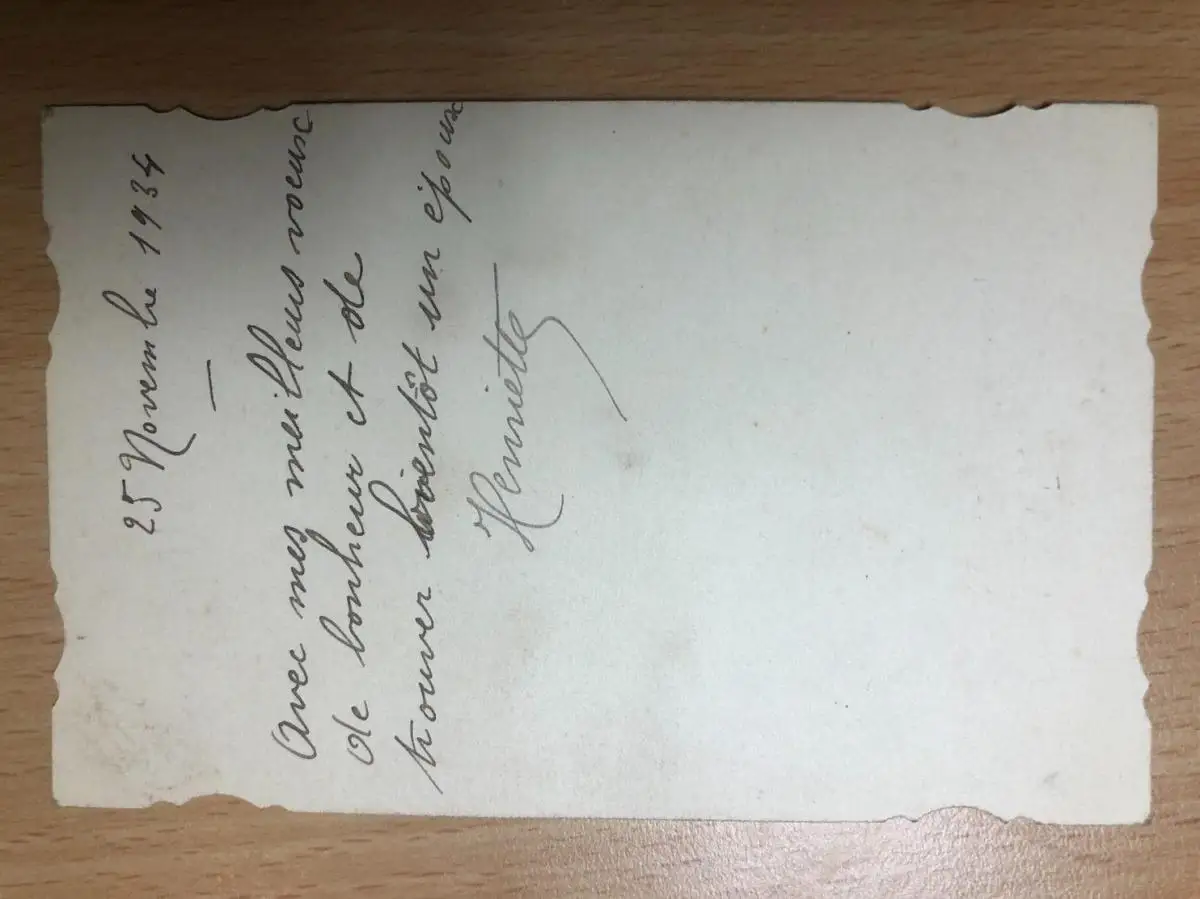 25 Novembre 1934
—
Avec mes meilleurs voeux
de bonheur et de
trouver bientôt un époux
Henriette